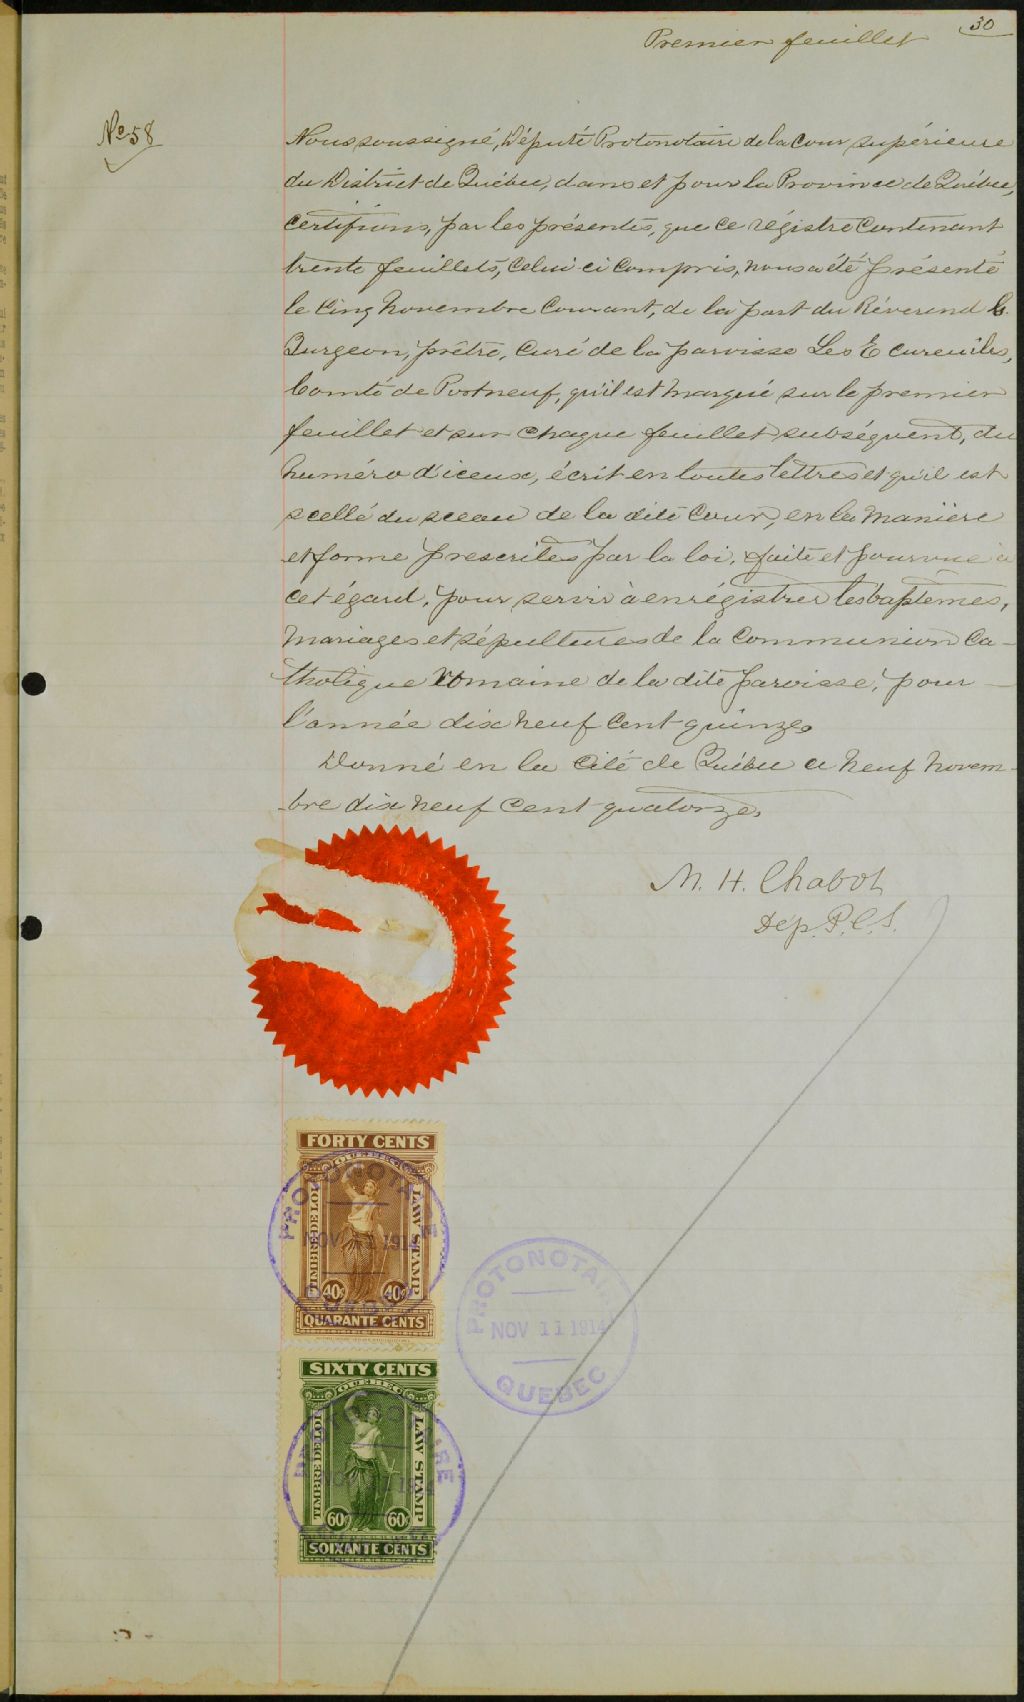 30
Premier feuillet
No 58
Nous soussigné, Député Protonotaire de la Cour supérieure
du District de Québec, dans et pour la Province de Québec,
certifions, par les présentes, que ce régistre contenant
trente feuillets, celui ci compris, nous a été présenté
le cinq novembre courant, de la part du Révérend
Burgeon, prêtre, curé de la paroisse Les Ecureuiles,
Comté de Portneuf, qu'il est marqué sur le premier
feuillet et sur chaque feuillet subséquent, du
numéro d'iceux, écrit en toutes lettres et qu'il est
scellé du sceau de la dite Cour, en la manière
et forme prescrites par la loi, faite et pourvue à
cet égard, pour servir à enrégistrer les baptêmes,
mariages et sépultures de la Communion Ca-
tholique romaine de la dite paroisse, pour
l'année dix neuf cent quinze.
Donné en la Cité de Québec ce neuf novem-
bre dix neuf cent quatorze.
M. H. Chabot
Dép. P. C. S.
FORTY CENTS
QUEBEC
TIMBRE DE LOI
LAW STAMP
40c 40c
QUARANTE CENTS
PROTONOTAIRE
NOV 11 1914
QUEBEC
PROTONOTAIRE
NOV 11 1914
QUEBEC
SIXTY CENTS
QUEBEC
TIMBRE DE LOI
LAW STAMP
60c 60c
SOIXANTE CENTS
PROTONOTAIRE
NOV 11 191